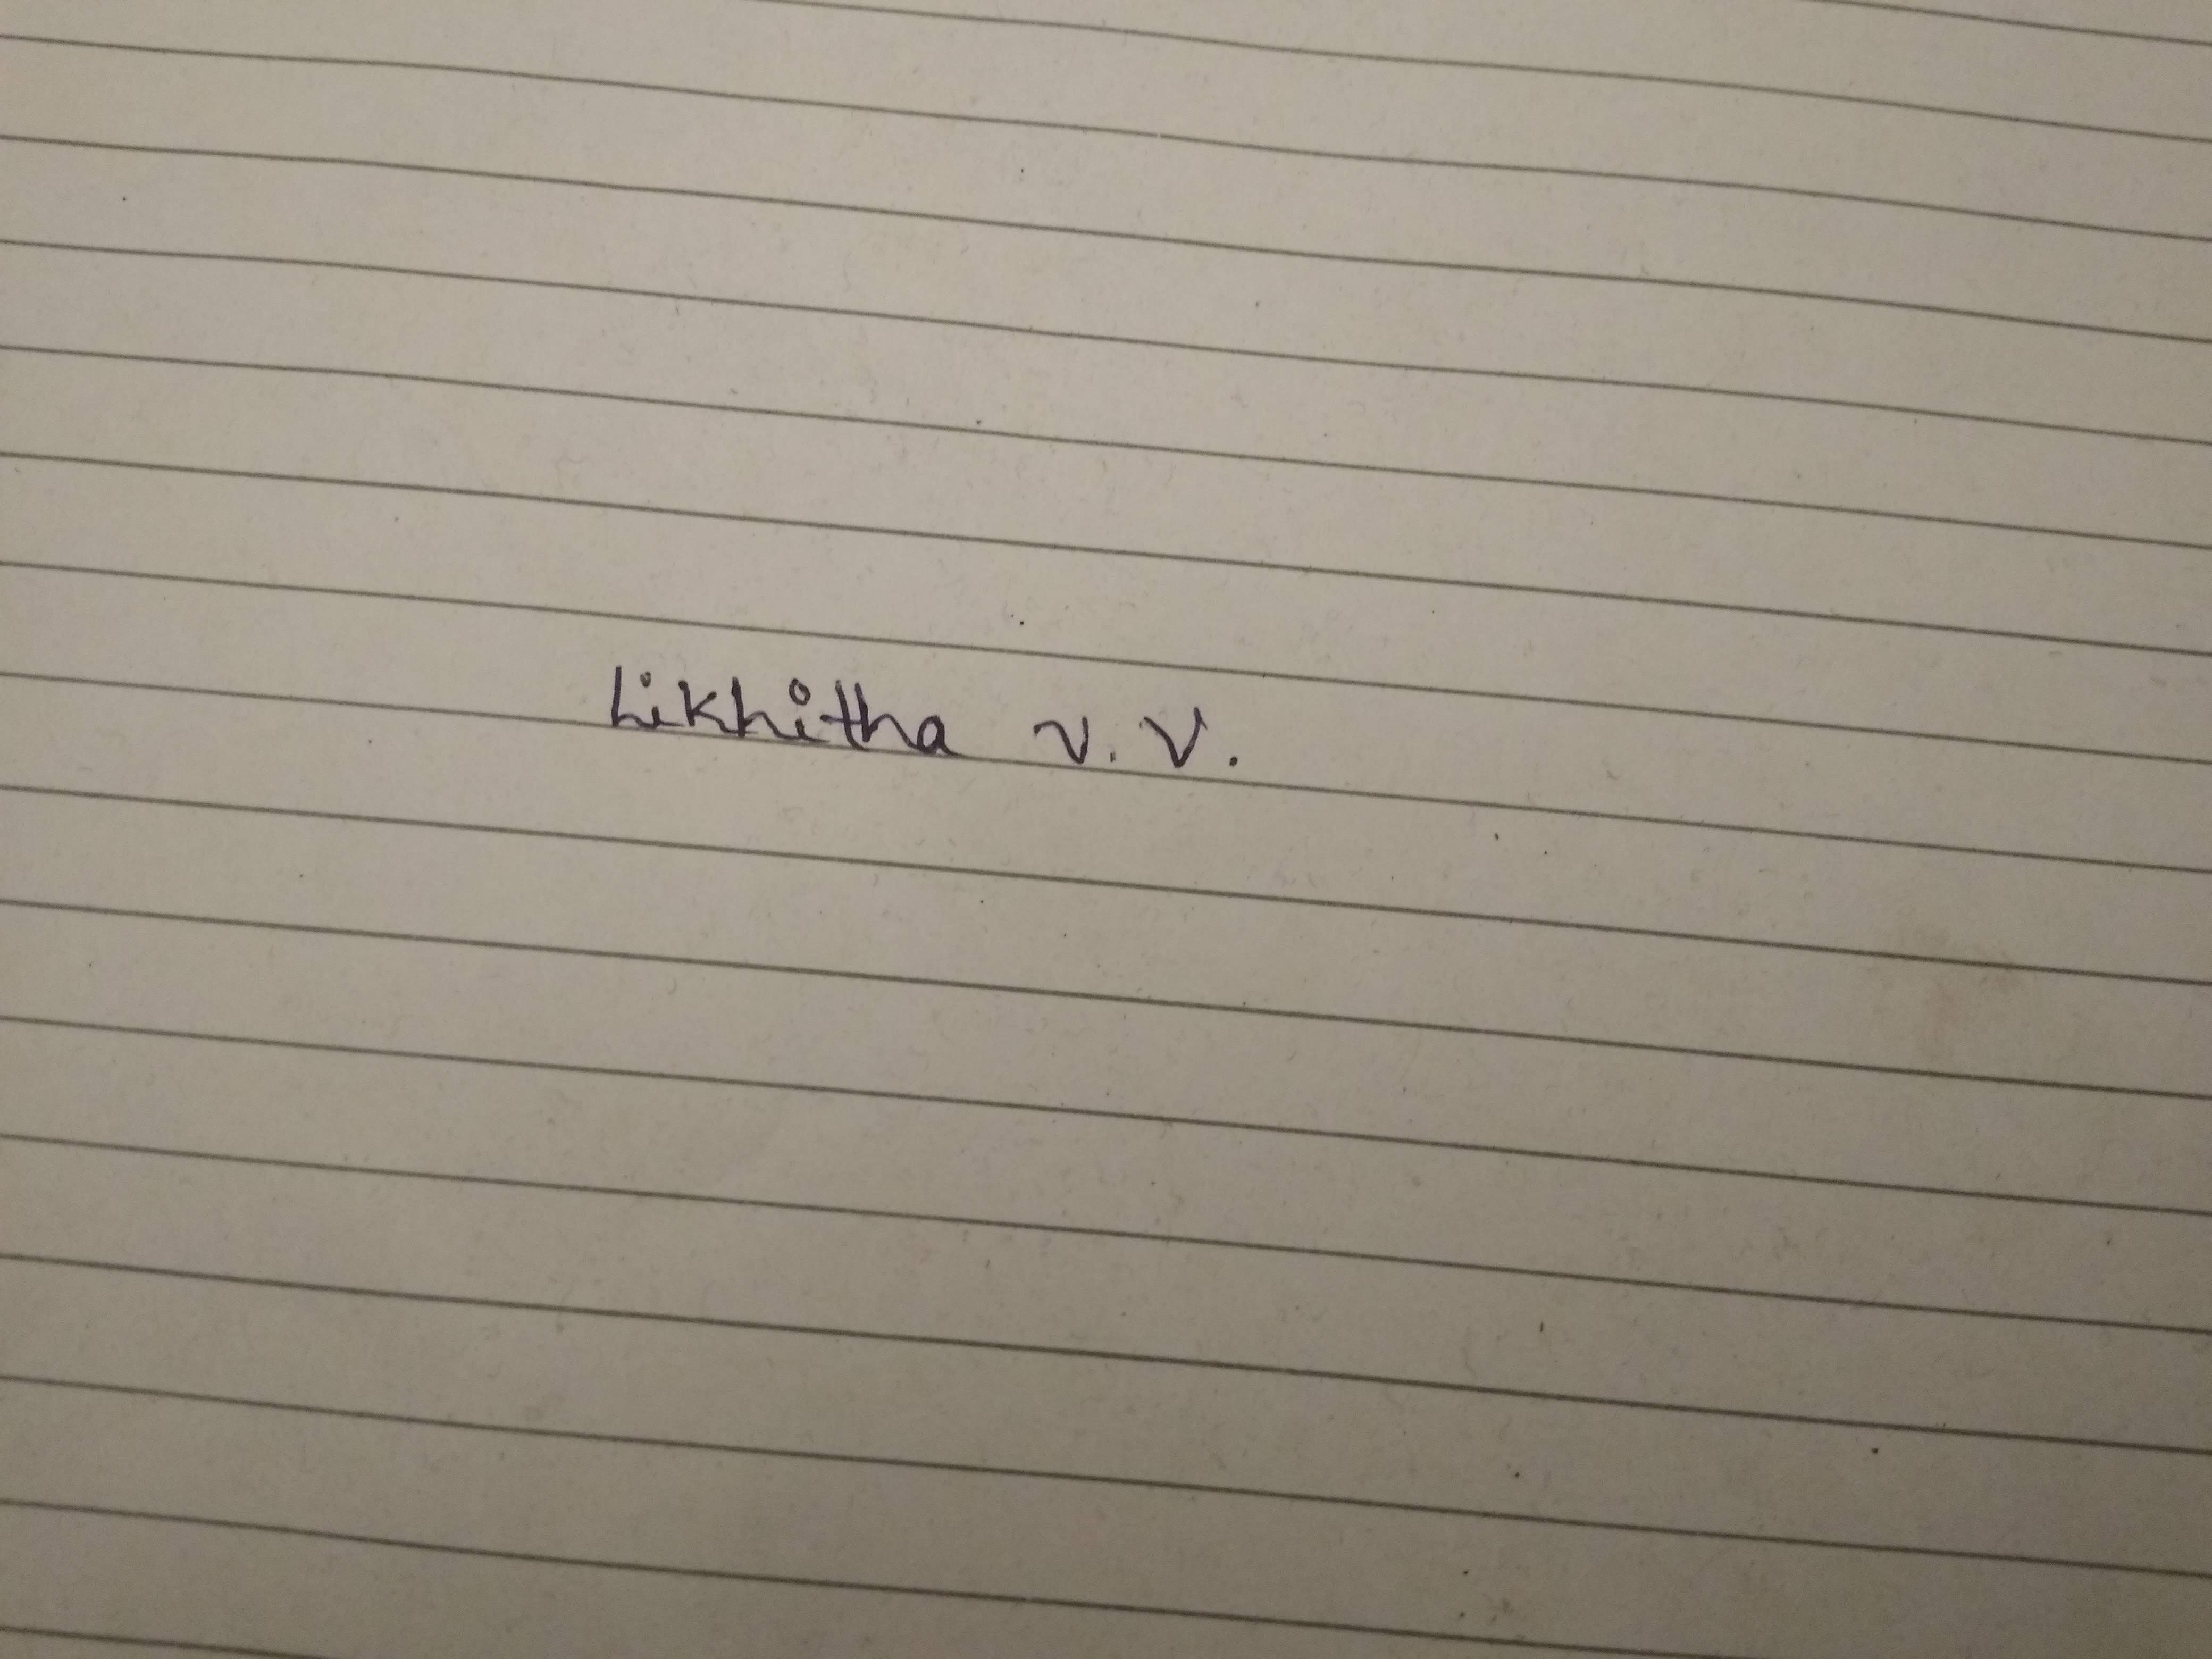 Likhitha V. V.